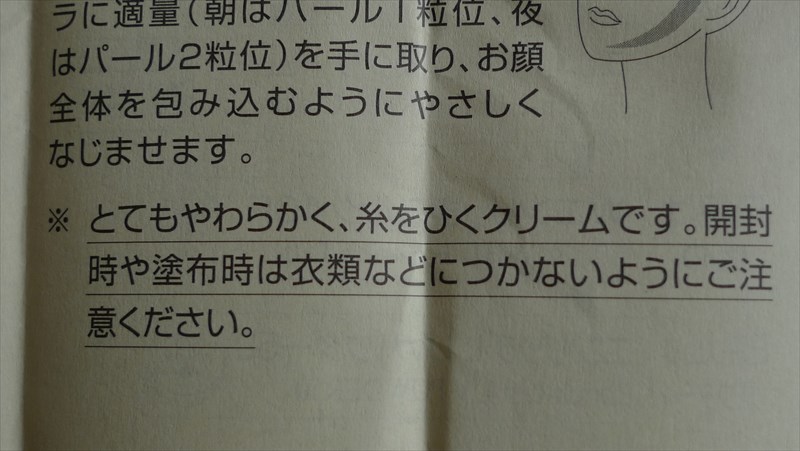 ラに適量(朝はパール1粒位、夜
はパール2粒位)を手に取り、お顔
全体を包み込むようにやさしく
なじませます。
※ とてもやわらかく、糸をひくクリームです。開封
時や塗布時は衣類などにつかないようにご注
意ください。